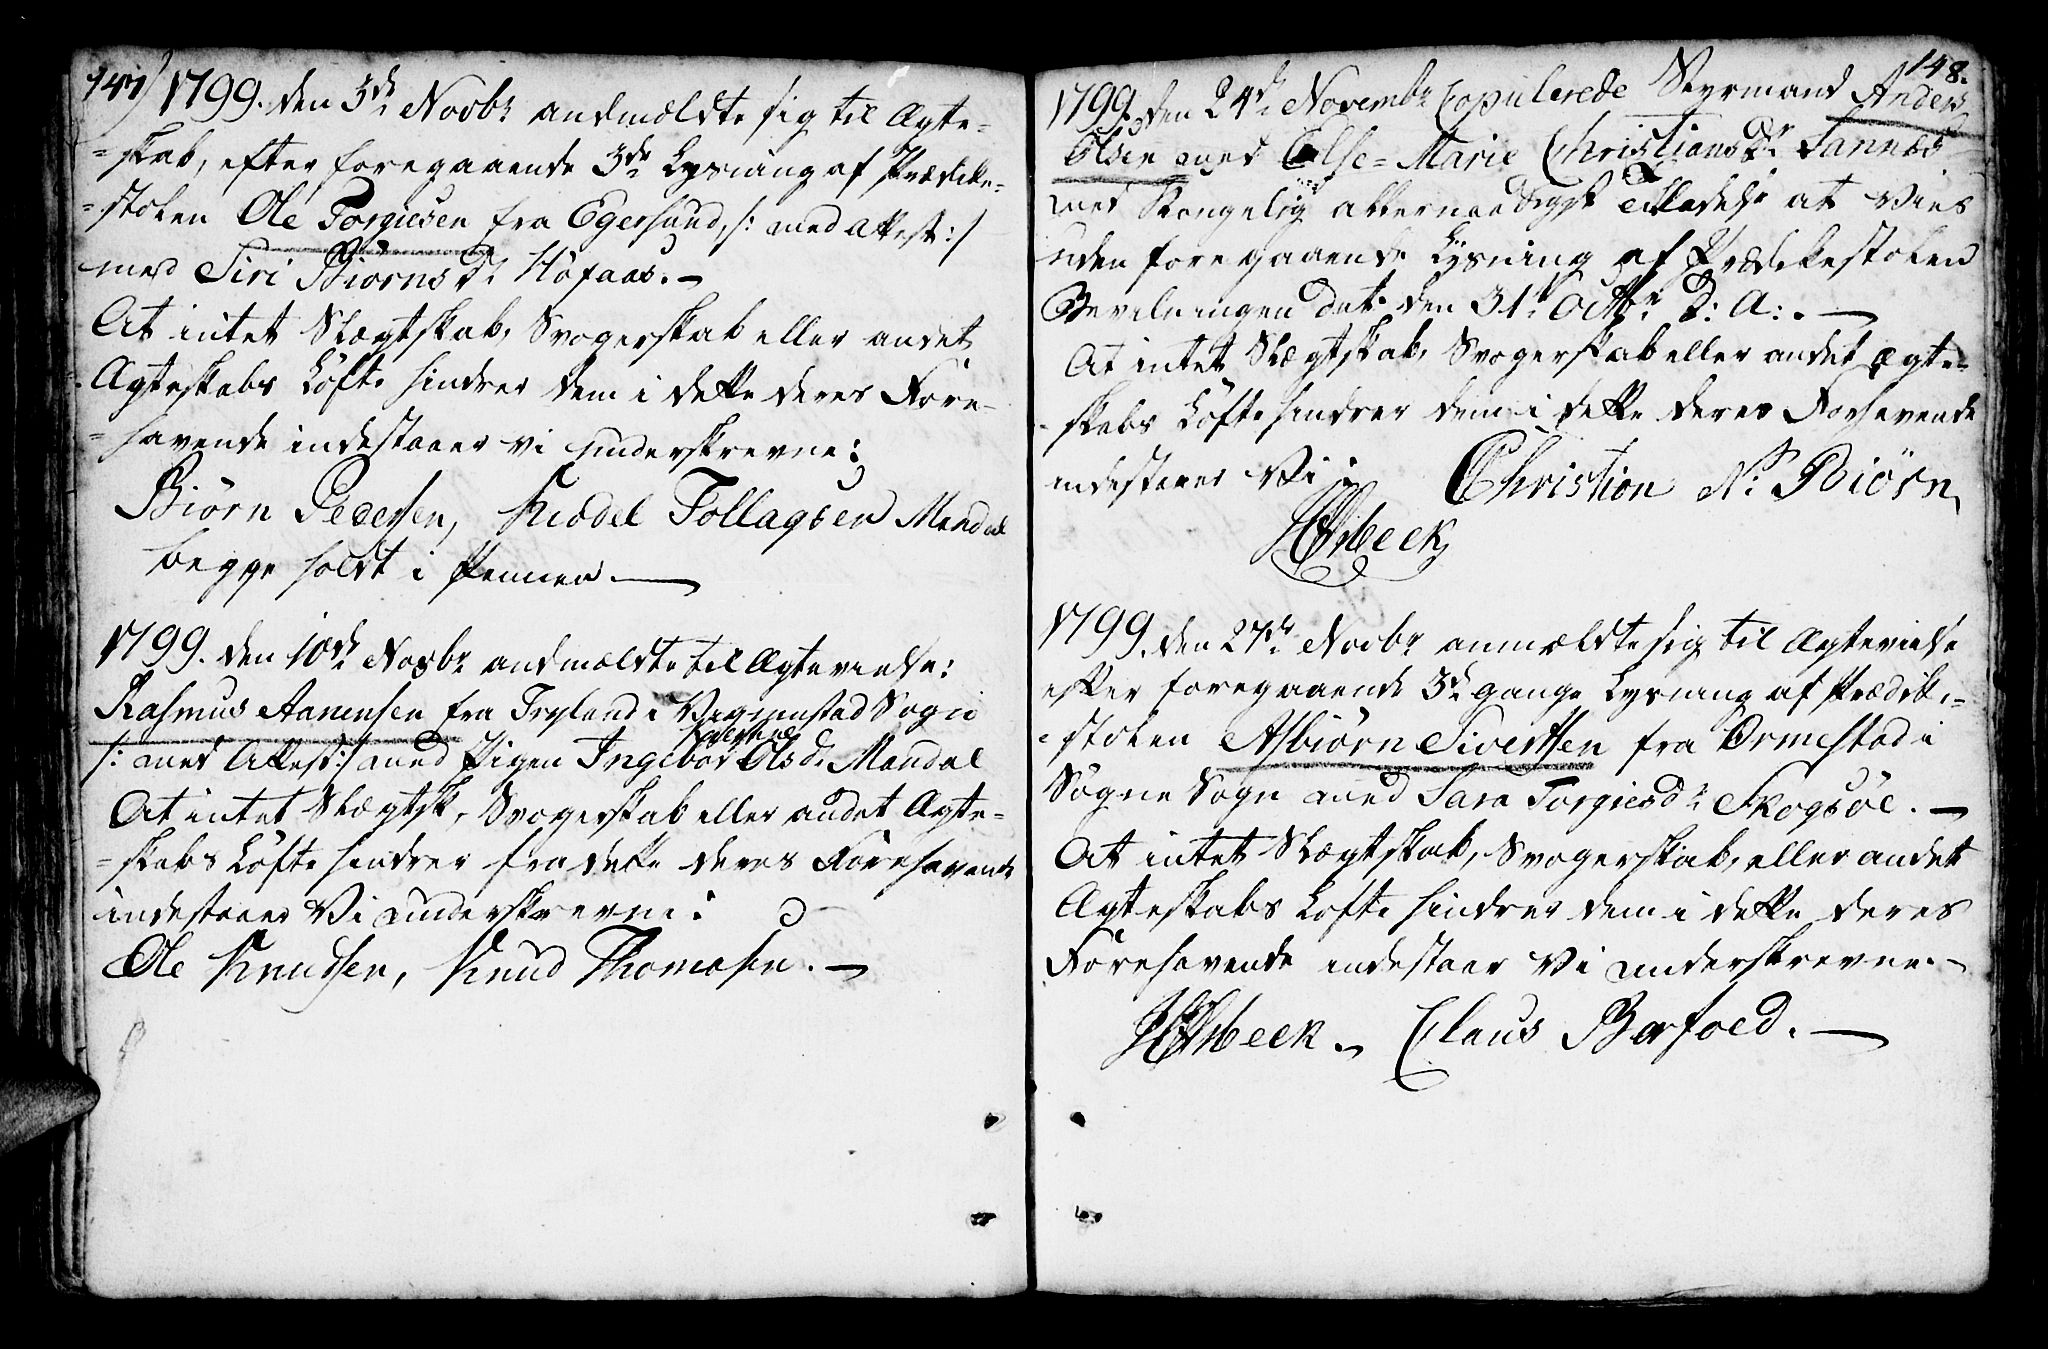 147) 1799. den 3de Novbr andmældte sig til Ægte=
=skab, efter foregaaende 3de Lysning af Prædike=
=stolen Ole Torgiesen fra Egersund, /: med Attest :/
med Siri Biørns Dr Høfaas. –
At intet Slægtskab, Svogerskab eller andet
Ægteskabs Løfte hindrer dem i dette deres Fore=
=havende indestaaer vi underskrevne:
Biørn Pedersen, Kiædel Follagsen Mandal
begge holdt i Pennen. —
1799. den 10de Novbr andmældte til Ægtevielse:
Rasmus Aanensen fra Tryland i Vigmostad Sogn
/: med Attest :/ med Pigen Ingebor Ols dr Mandal
At intet Slægtsk, Svogerskab eller andet Ægte=
=skabs Løfte hindrer fra dette deres Forehavende
indestaaer Vi underskrevne:
Ole Knudsen, Knud Thomasen. —
148.
1799. den 24de Novembr Copulerede Styrmand Anders
Olsen med Else=Marie Christians Dr Sannes
med Kongelig allernaadigst Tilladelse at Vies
uden foregaaende Lysning af Prædikestolen
Bevilningen dat: den 31te Octbr d: A: . —
At intet Slægtskab, Svogerskab eller andet Ægte=
=skabs Løfte hindrer dem i dette deres Forhavende
indestaaer Vi
Christian N: Biørn
Asbeck
1799. den 27de Novbr anmældte sig til Ægtevielse
efter foregaaende 3de gange Lysning af Prædike=
=stolen Asbiørn Sivertsen fra Ormestad i
Søgne Sogn med Sara Torgiesdr Skogsøe. —
At intet Slægtskab, Svogerskab, eller andet
Ægteskabs Løfte hindrer dem i dette deres
Forehavende indestaaer Vi underskrevne. –
Asbeck. Claus Barfoed. —